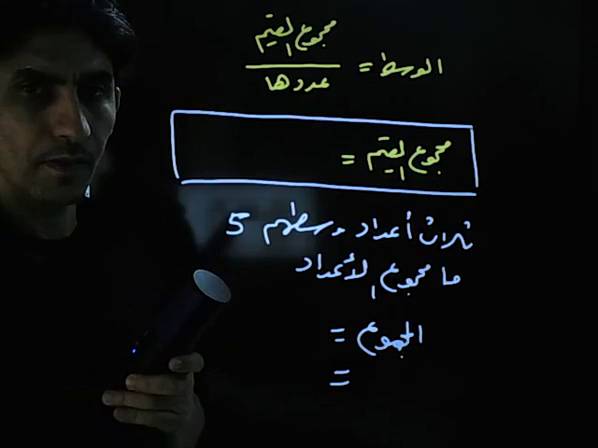 الوسط = مجموع القيم
عددها
مجموع القيم =
ثلاث أعداد وسطهم 5
ما مجموع الأعداد
المجموع =
=